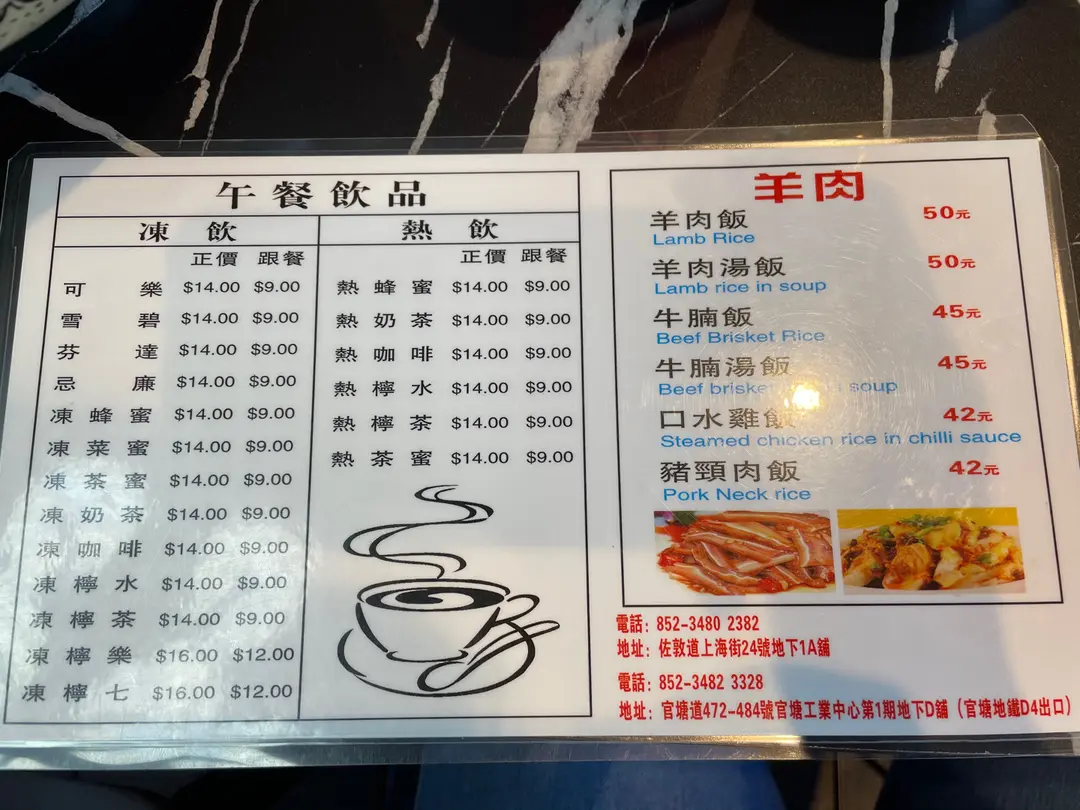 午餐飲品
凍飲
正價 跟餐
可樂 $14.00 $9.00
雪碧 $14.00 $9.00
芬達 $14.00 $9.00
忌廉 $14.00 $9.00
凍蜂蜜 $14.00 $9.00
凍菜蜜 $14.00 $9.00
凍茶蜜 $14.00 $9.00
凍奶茶 $14.00 $9.00
凍咖啡 $14.00 $9.00
凍檸水 $14.00 $9.00
凍檸茶 $14.00 $9.00
凍檸樂 $16.00 $12.00
凍檸七 $16.00 $12.00
熱飲
正價 跟餐
熱蜂蜜 $14.00 $9.00
熱奶茶 $14.00 $9.00
熱咖啡 $14.00 $9.00
熱檸水 $14.00 $9.00
熱檸茶 $14.00 $9.00
熱茶蜜 $14.00 $9.00
羊肉
羊肉飯 50元
Lamb Rice
羊肉湯飯 50元
Lamb rice in soup
牛腩飯 45元
Beef Brisket Rice
牛腩湯飯 45元
Beef brisket soup
口水雞飯 42元
Steamed chicken rice in chilli sauce
豬頸肉飯 42元
Pork Neck rice
電話：852-3480 2382
地址：佐敦道上海街24號地下1A舖
電話：852-3482 3328
地址：官塘道472-484號官塘工業中心第1期地下D舖（官塘地鐵D4出口）